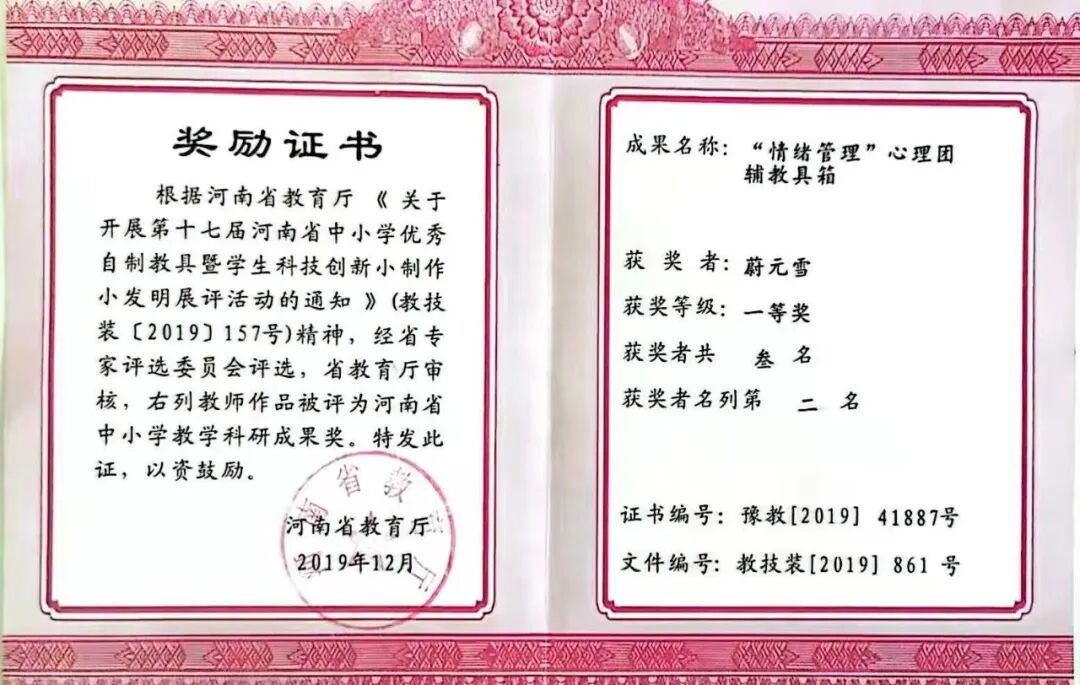 奖励证书
根据河南省教育厅《关于
开展第十七届河南省中小学优秀
自制教具暨学生科技创新小制作
小发明展评活动的通知》(教技
装〔2019〕157号)精神，经省专
家评选委员会评选，省教育厅审
核，右列教师作品被评为河南省
中小学教学科研成果奖。特发此
证，以资鼓励。
河南省教育厅
2019年12月
河南省教育厅
成果名称：“情绪管理”心理团
辅教具箱
获奖者：蔚元雪
获奖等级：一等奖
获奖者共 叁 名
获奖者名列第 二 名
证书编号：豫教[2019] 41887号
文件编号：教技装[2019] 861 号